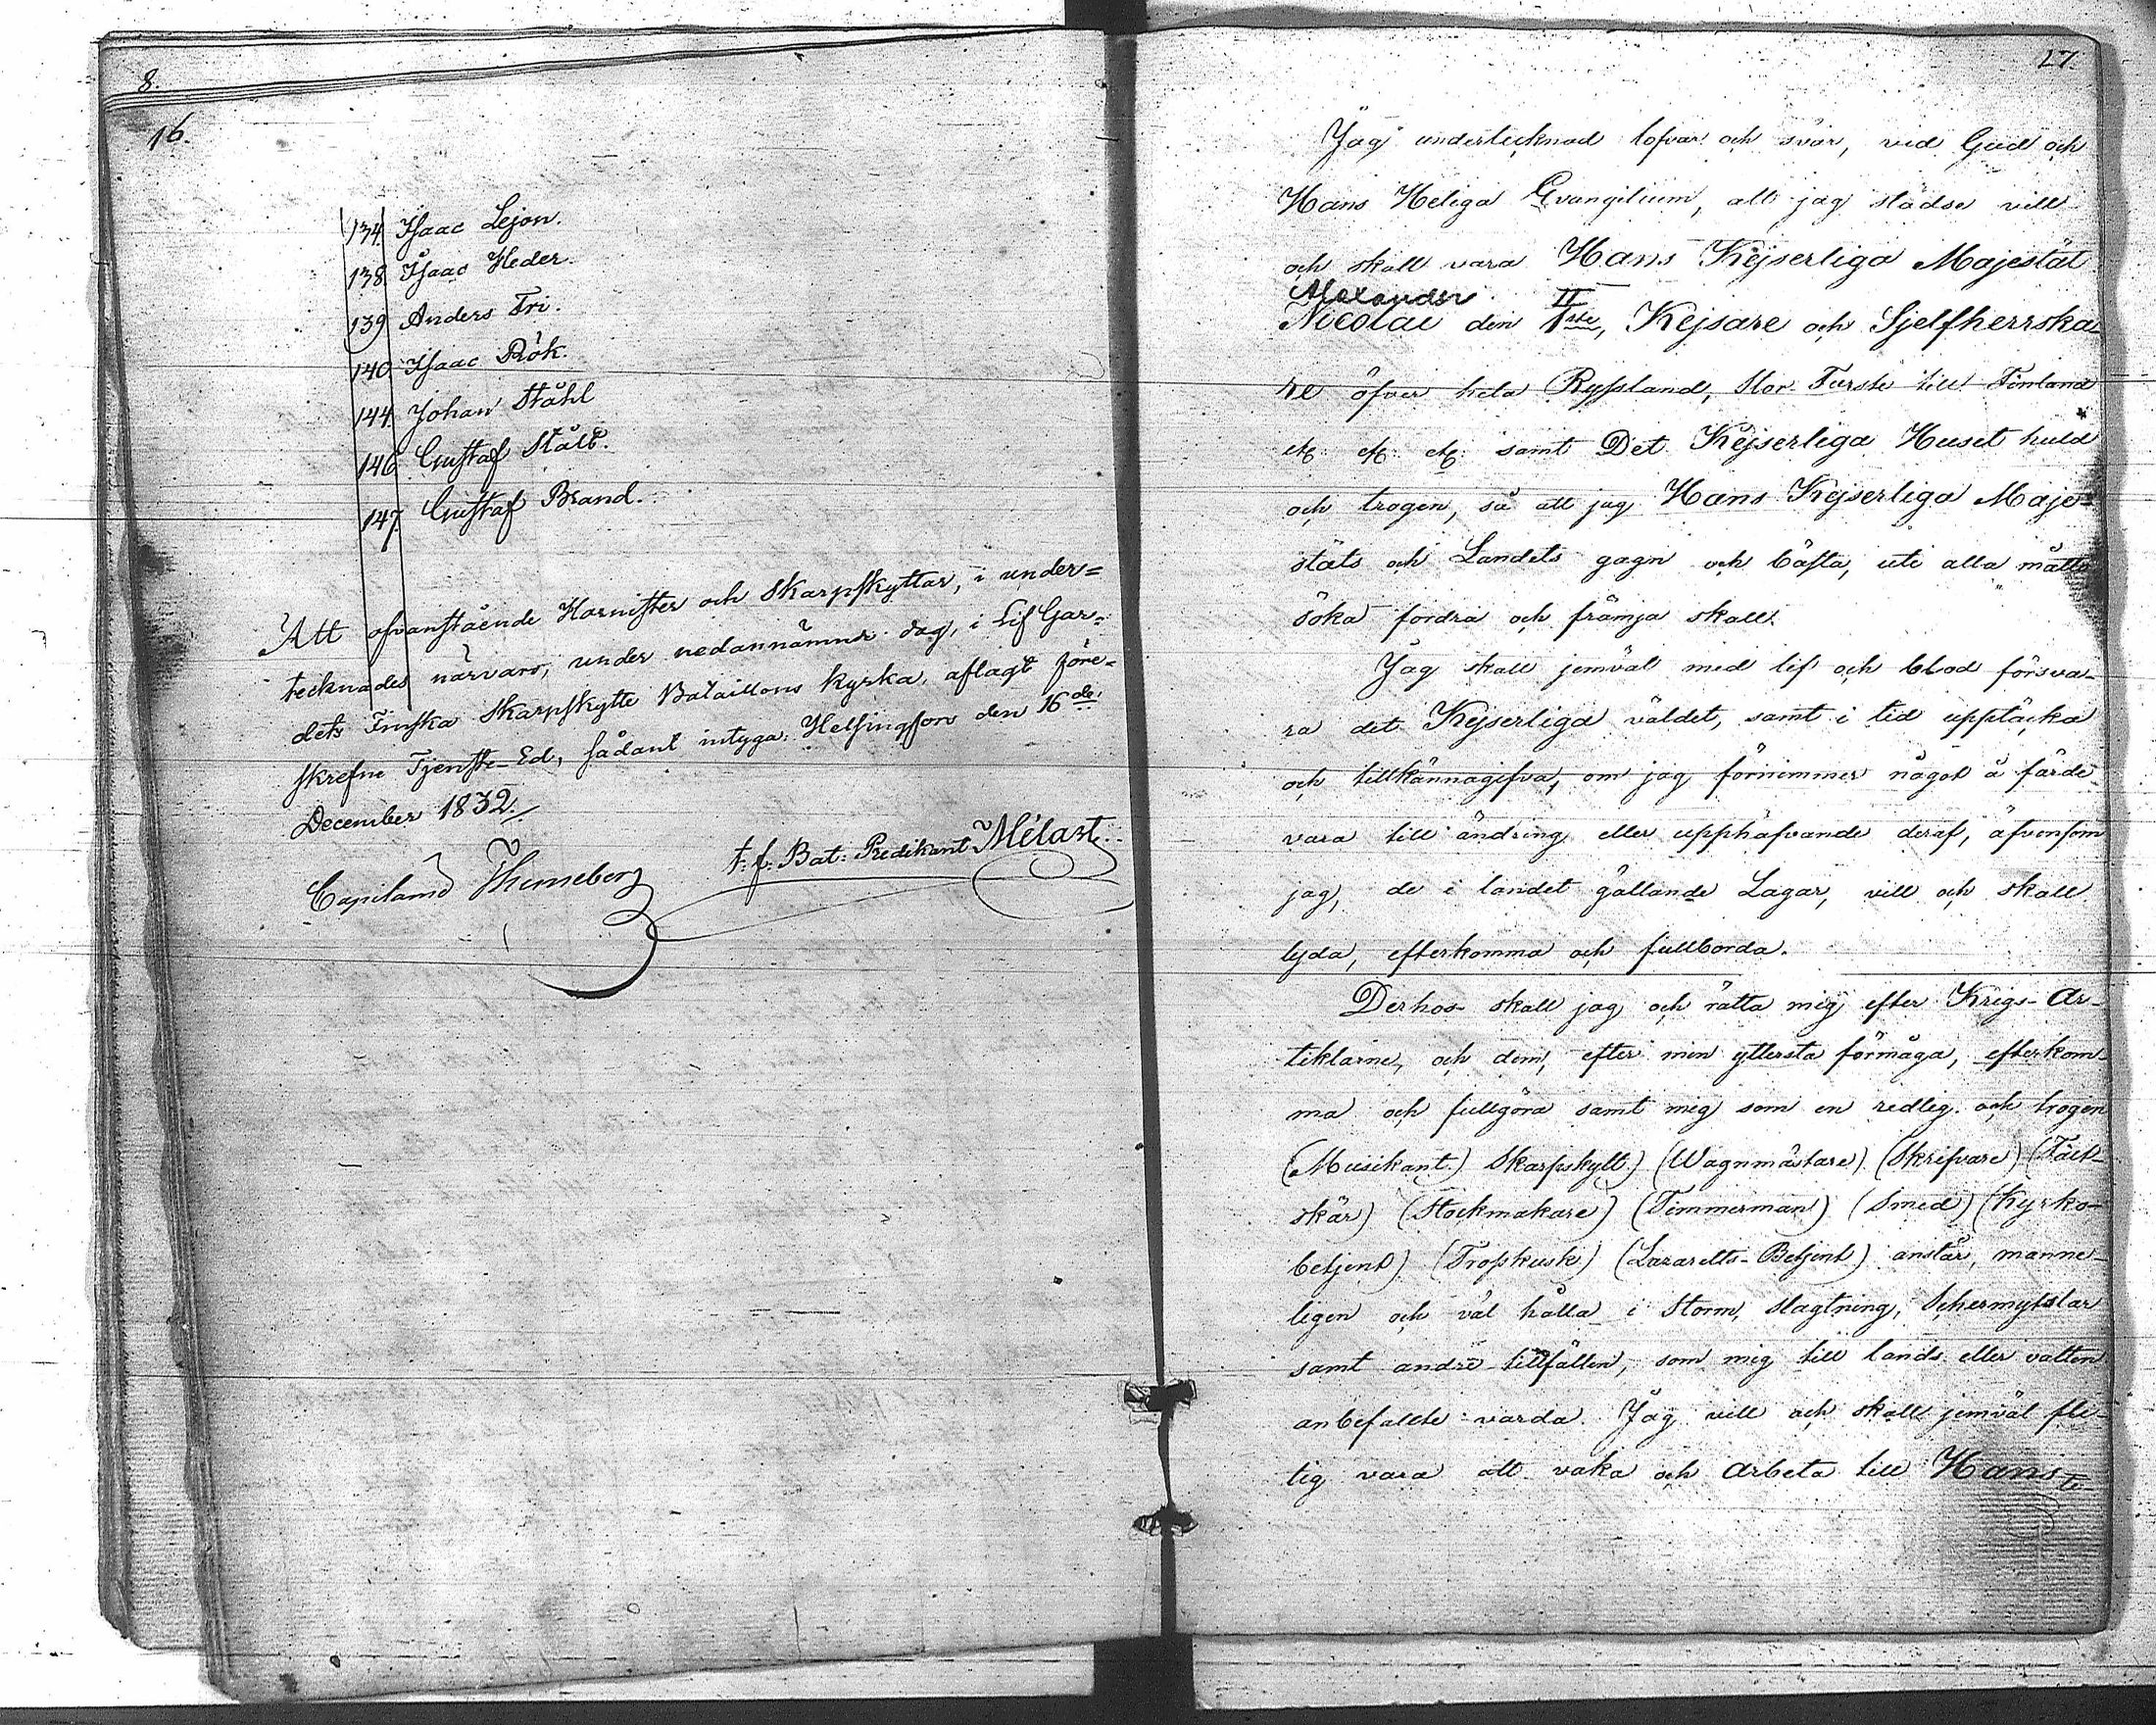 8.
16.
134. Isaac Lejon.
138. Isaac Heder.
139. Anders Fri.
140. Isaac Rök.
144. Johan Ståhl
146. Gustaf Stålt.
147. Gustaf Brand.
Att ofvanstående Hornister och Skarpskyttar, i under=
tecknades närvaro, under nedannämnde dag, i Lif Gar=
dets Finska Skarpskytte Bataillons kyrka, aflagt före=
skrefne Tjenste-Ed, sådant intyga. Helsingfors den 16de
December 1832.
t. f. Bat: Predikant Mélart.
Capitaine Thuneberg
17.
Jag undertecknad lofvar och svär, vid Gud och
Hans Heliga Evangelium, att jag städse vill
och skall vara Hans Kejserliga Majestät
Alexander II
Nicolai den Iste, Kejsare och Sjelfherrska-
re öfver hela Ryssland, Stor-Furste till Finland
etc. etc. etc. samt Det Kejserliga Huset huld
och trogen, så att jag Hans Kejserliga Maje=
stäts och Landets gagn och bästa, uti alla måtto
söka fordra och främja skall.
Jag skall jemväl med lif och blod försva-
ra det Kejserliga väldet, samt i tid upptäcka
och tillkännagifva, om jag förnimmer något å färde
vara till ändring eller upphäfvande deraf, äfvensom
jag, de i landet gällande Lagar, vill och skall
lyda, efterkomma och fullborda.
Derhos skall jag och rätta mig efter Krigs-Ar-
tiklarne, och dem, efter min yttersta förmåga, efterkom-
ma och fullgöra samt mig som en redlig och trogen
(Musikant.) Skarpskytt.) (Wagnmästare) (Skrifvare) (Fält-
skär) (Stockmakare) (Timmerman) (Smed) (Kyrko-
betjent) (Trosskusk) (Lazaretts-Betjent) anstår, manne-
ligen och väl hålla i Storm, slagtning, Schermytslar
samt andre tillfällen, som mig till lands eller vatten
anbefallde varda. Jag vill och skall jemväl fli-
tig vara att vaka och arbeta till Hans